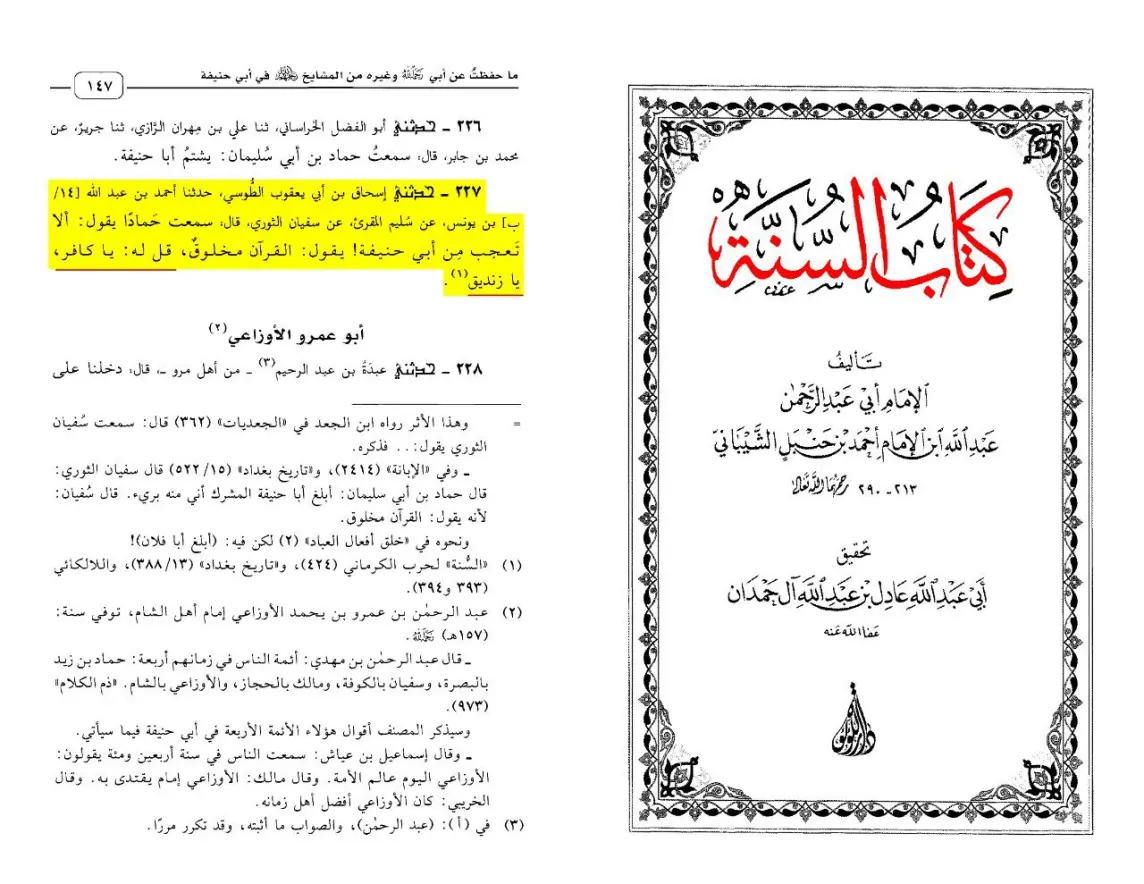 ما حفظتُ عن أبي رحمه الله وغيره من المشايخ في أبي حنيفة
١٤٧
٢٢٦ ـ حدثني أبو الفضل الخراساني، ثنا علي بن مِهران الرَّازي، ثنا جريرٌ، عن
محمد بن جابر، قال: سمعتُ حماد بن أبي سُليمان: يشتمُ أبا حنيفة.
٢٢٧ ـ حدثني إسحاق بن أبي يعقوب الطُّوسي، حدثنا أحمد بن عبد الله [١٤/
ب] بن يونس، عن سُليم المقرئ، عن سفيان الثوري، قال: سمعت حَمادًا يقول: ألا
تَعجب مِن أبي حنيفة! يقول: القرآن مخلوقٌ، قل له: يا كافر،
يا زنديق(١).
أبو عمرو الأوزاعي(٢)
٢٢٨ ـ حدثني عبدَةُ بن عبد الرحيم(٣) ـ من أهل مرو ـ، قال: دخلنا على
= وهذا الأثر رواه ابن الجعد في «الجعديات» (٣٦٢) قال: سمعت سُفيان
الثوري يقول: .. فذكره.
ـ وفي «الإبانة» (٢٤١٤)، و«تاريخ بغداد» (٥٢٢/١٥) قال سفيان الثوري:
قال حماد بن أبي سليمان: أبلغ أبا حنيفة المشرك أني منه بريء. قال سُفيان:
لأنه يقول: القرآن مخلوق.
ونحوه في «خلق أفعال العباد» (٢) لكن فيه: (أبلغ أبا فلان)!
(١) «السُّنة» لحرب الكرماني (٤٢٤)، و«تاريخ بغداد» (٣٨٨/١٣)، واللالكائي
(٣٩٣ و٣٩٤).
(٢) عبد الرحمٰن بن عمرو بن يحمد الأوزاعي إمام أهل الشام، توفي سنة:
(١٥٧هـ) رحمه الله.
ـ قال عبد الرحمٰن بن مهدي: أئمة الناس في زمانهم أربعة: حماد بن زيد
بالبصرة، وسفيان بالكوفة، ومالك بالحجاز، والأوزاعي بالشام. «ذم الكلام»
(٩٧٣).
وسيذكر المصنف أقوال هؤلاء الأئمة الأربعة في أبي حنيفة فيما سيأتي.
ـ وقال إسماعيل بن عياش: سمعت الناس في سنة أربعين ومئة يقولون:
الأوزاعي اليوم عالم الأمة. وقال مالك: الأوزاعي إمام يقتدى به. وقال
الخريبي: كان الأوزاعي أفضل أهل زمانه.
(٣) في (أ): (عبد الرحمٰن)، والصواب ما أثبته، وقد تكرر مررًا.
كِتَابُ السُّنَّةِ
تأليفُ
الإمام أبي عبد الرحمٰن
عبد الله ابن الإمام أحمد بن حنبل الشيبانيّ
٢١٣ ـ ٢٩٠ رحمهما الله تعالى
تحقيق
أبي عبد الله عادل بن عبد الله آل حمدان
عفا الله عنه
دار اللؤلؤة